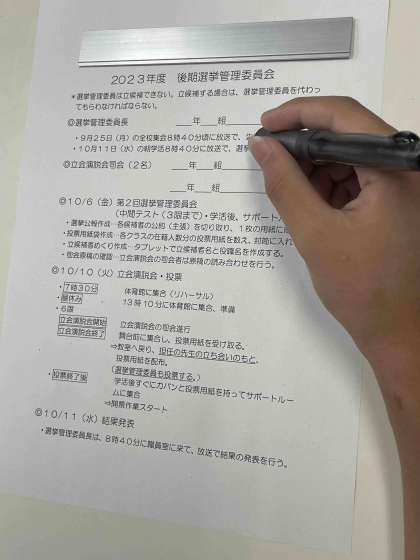 2023年度 後期選挙管理委員会
＊選挙管理委員は立候補できない。立候補する場合は、選挙管理委員を代わっ
てもらわなければならない。
◎選挙管理委員長 ＿＿年＿＿組
・9月25日（月）の全校集会8時40分頃に放送で、
・10月11日（水）の朝学活8時40分に放送で、選挙
◎立会演説会司会（2名） ＿＿年＿＿組
＿＿年＿＿組
◎10/6（金）第2回選挙管理委員会
（中間テスト（3限まで）・学活後、サポートル
・選挙公報作成…各候補者の公約（主張）を切り取り、1枚の用紙に
・投票用紙袋作成…各クラスの在籍人数分の投票用紙を数え、封筒に入れ
・立候補者めくり作成…タブレットで立候補者名と役職名を作成する。
・司会原稿の確認…立会演説会の司会者は原稿の読み合わせを行う。
◎10/10（火）立会演説会・投票
・7時30分 体育館に集合（リハーサル）
・昼休み 13時10分に体育館に集合、準備
・6限
立会演説会開始 立会演説会の司会進行
立会演説会終了 舞台前に集合し、投票用紙を受け取る。
⇒教室へ戻り、担任の先生の立ち会いのもと、
投票用紙を配布。
（選挙管理委員も投票する。）
・投票終了後 学活後すぐにカバンと投票用紙を持ってサポートルー
ムに集合
⇒開票作業スタート
◎10/11（水）結果発表
・選挙管理委員長は、8時40分に職員室に来て、放送で結果の発表を行う。